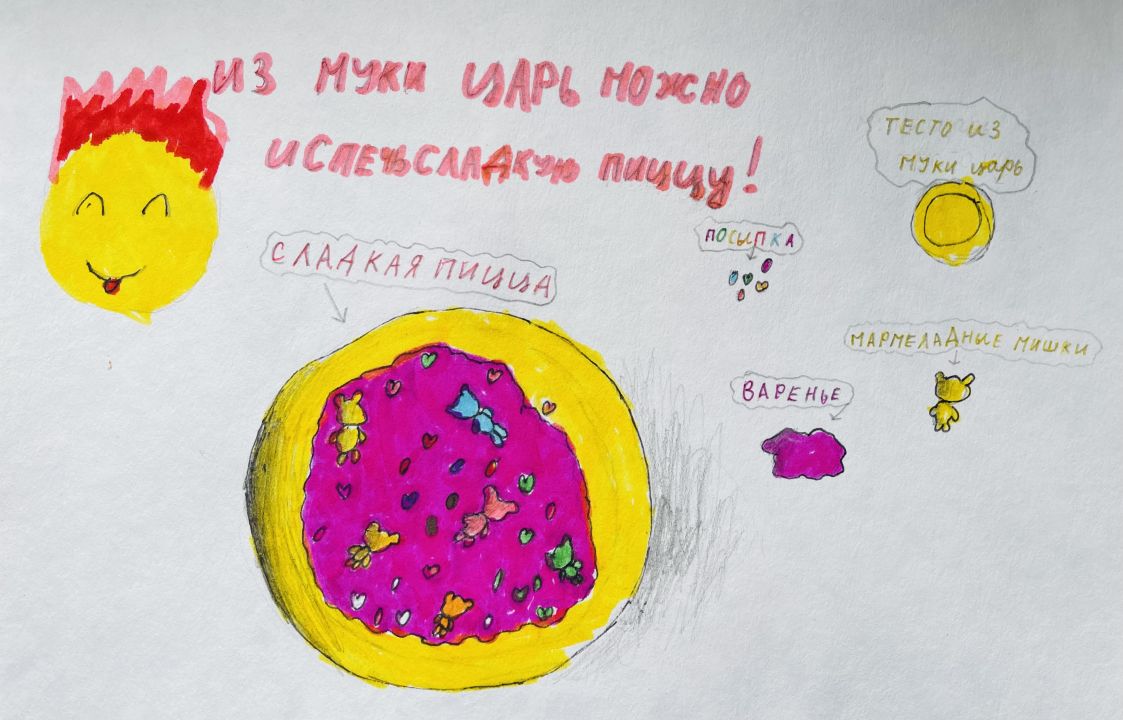 ИЗ МУКИ ЦАРЬ МОЖНО
ИСПЕЧЬ СЛАДКУЮ ПИЦЦУ!
ТЕСТО ИЗ
МУКИ царь
ПОСЫПКА
СЛАДКАЯ ПИЦЦА
МАРМЕЛАДНЫЕ МИШКИ
ВАРЕНЬЕ